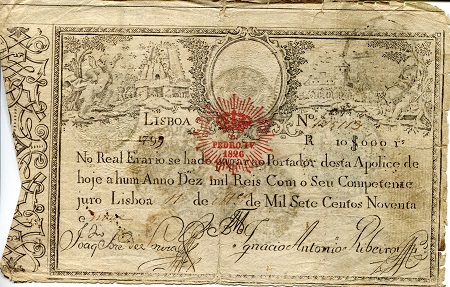 LISBOA Nº
1799 R 10$000 rs
PEDRO IV
1826
No Real Erario se hade pagar ao Portador desta Apolice de
hoje a hum Anno Dez mil Reis Com o Seu Competente
juro Lisboa de de Mil Sete Centos Noventa
e
Ignacio Antonio Ribeiro